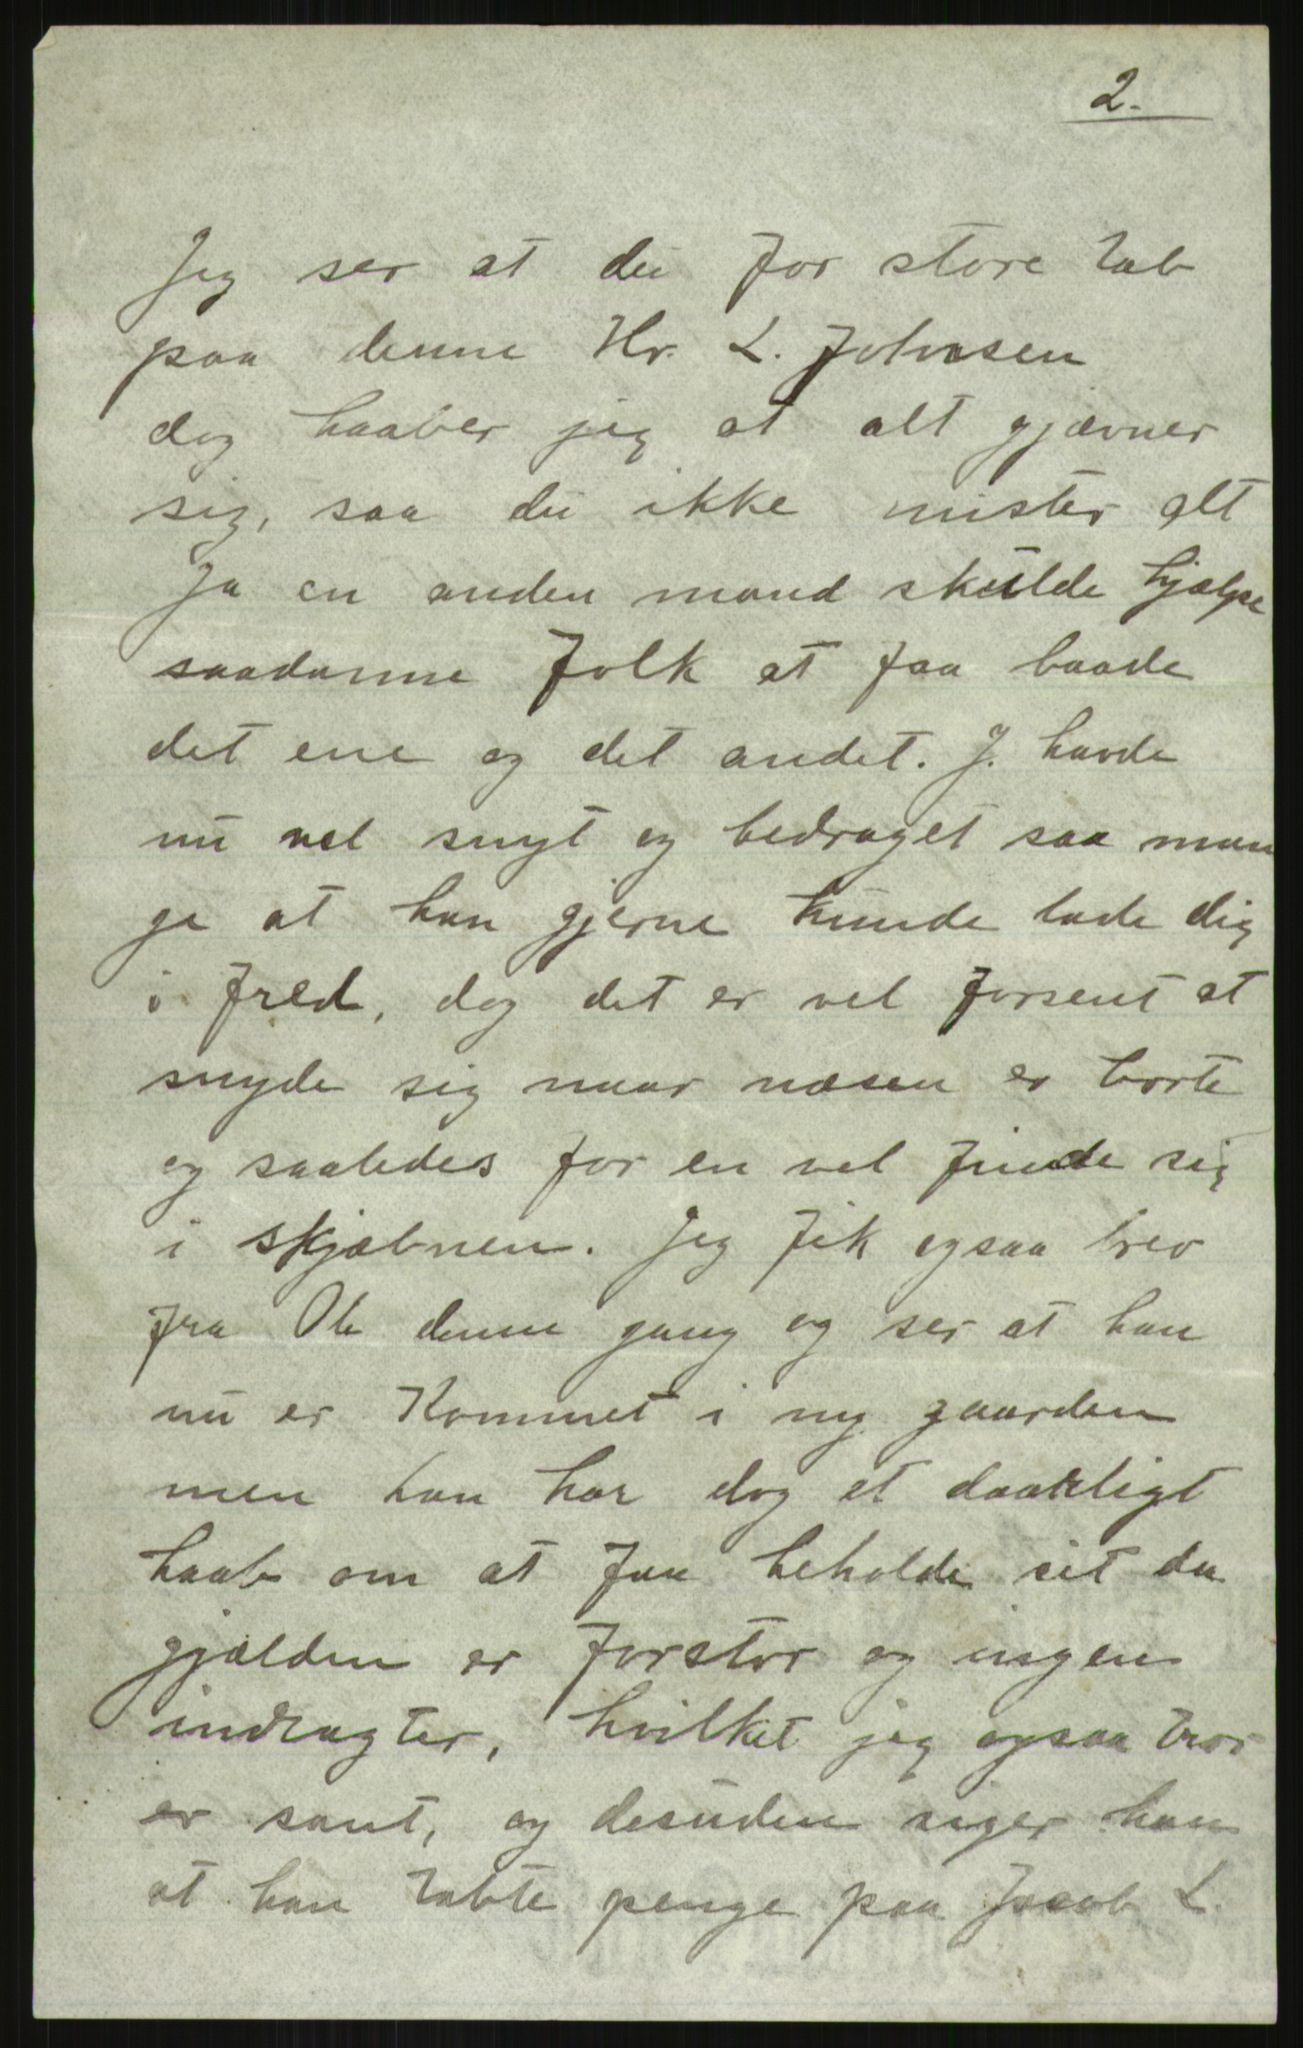 2.
Jeg ser at du for store tab
paa denne Hr. L. Johnsen
dog haaber jeg at alt gjævner
sig, saa du ikke mister alt
Ja en anden mand skulde hjælpe
saadanne folk at faa baade
det ene og det andet. J. havde
nu vel snyt og bedraget saa man
ge at han gjerne kunde lade dig
i fred, dog det er vel forsent at
snyde sig naar næsen er borte
og saaledes for en vel finde sig
i skjæbnen. Jeg fik ogsaa brev
fra Ole denne gang og ser at han
nu er Kommet i ny gaarden
men han har dog et daarligt
haab om at faa beholde sit da
gjælden er forstor og ingen
indtægter, hvilket jeg ogsaa tror
er sant, og desuden siger han
at han tabte penge paa Jacob L.